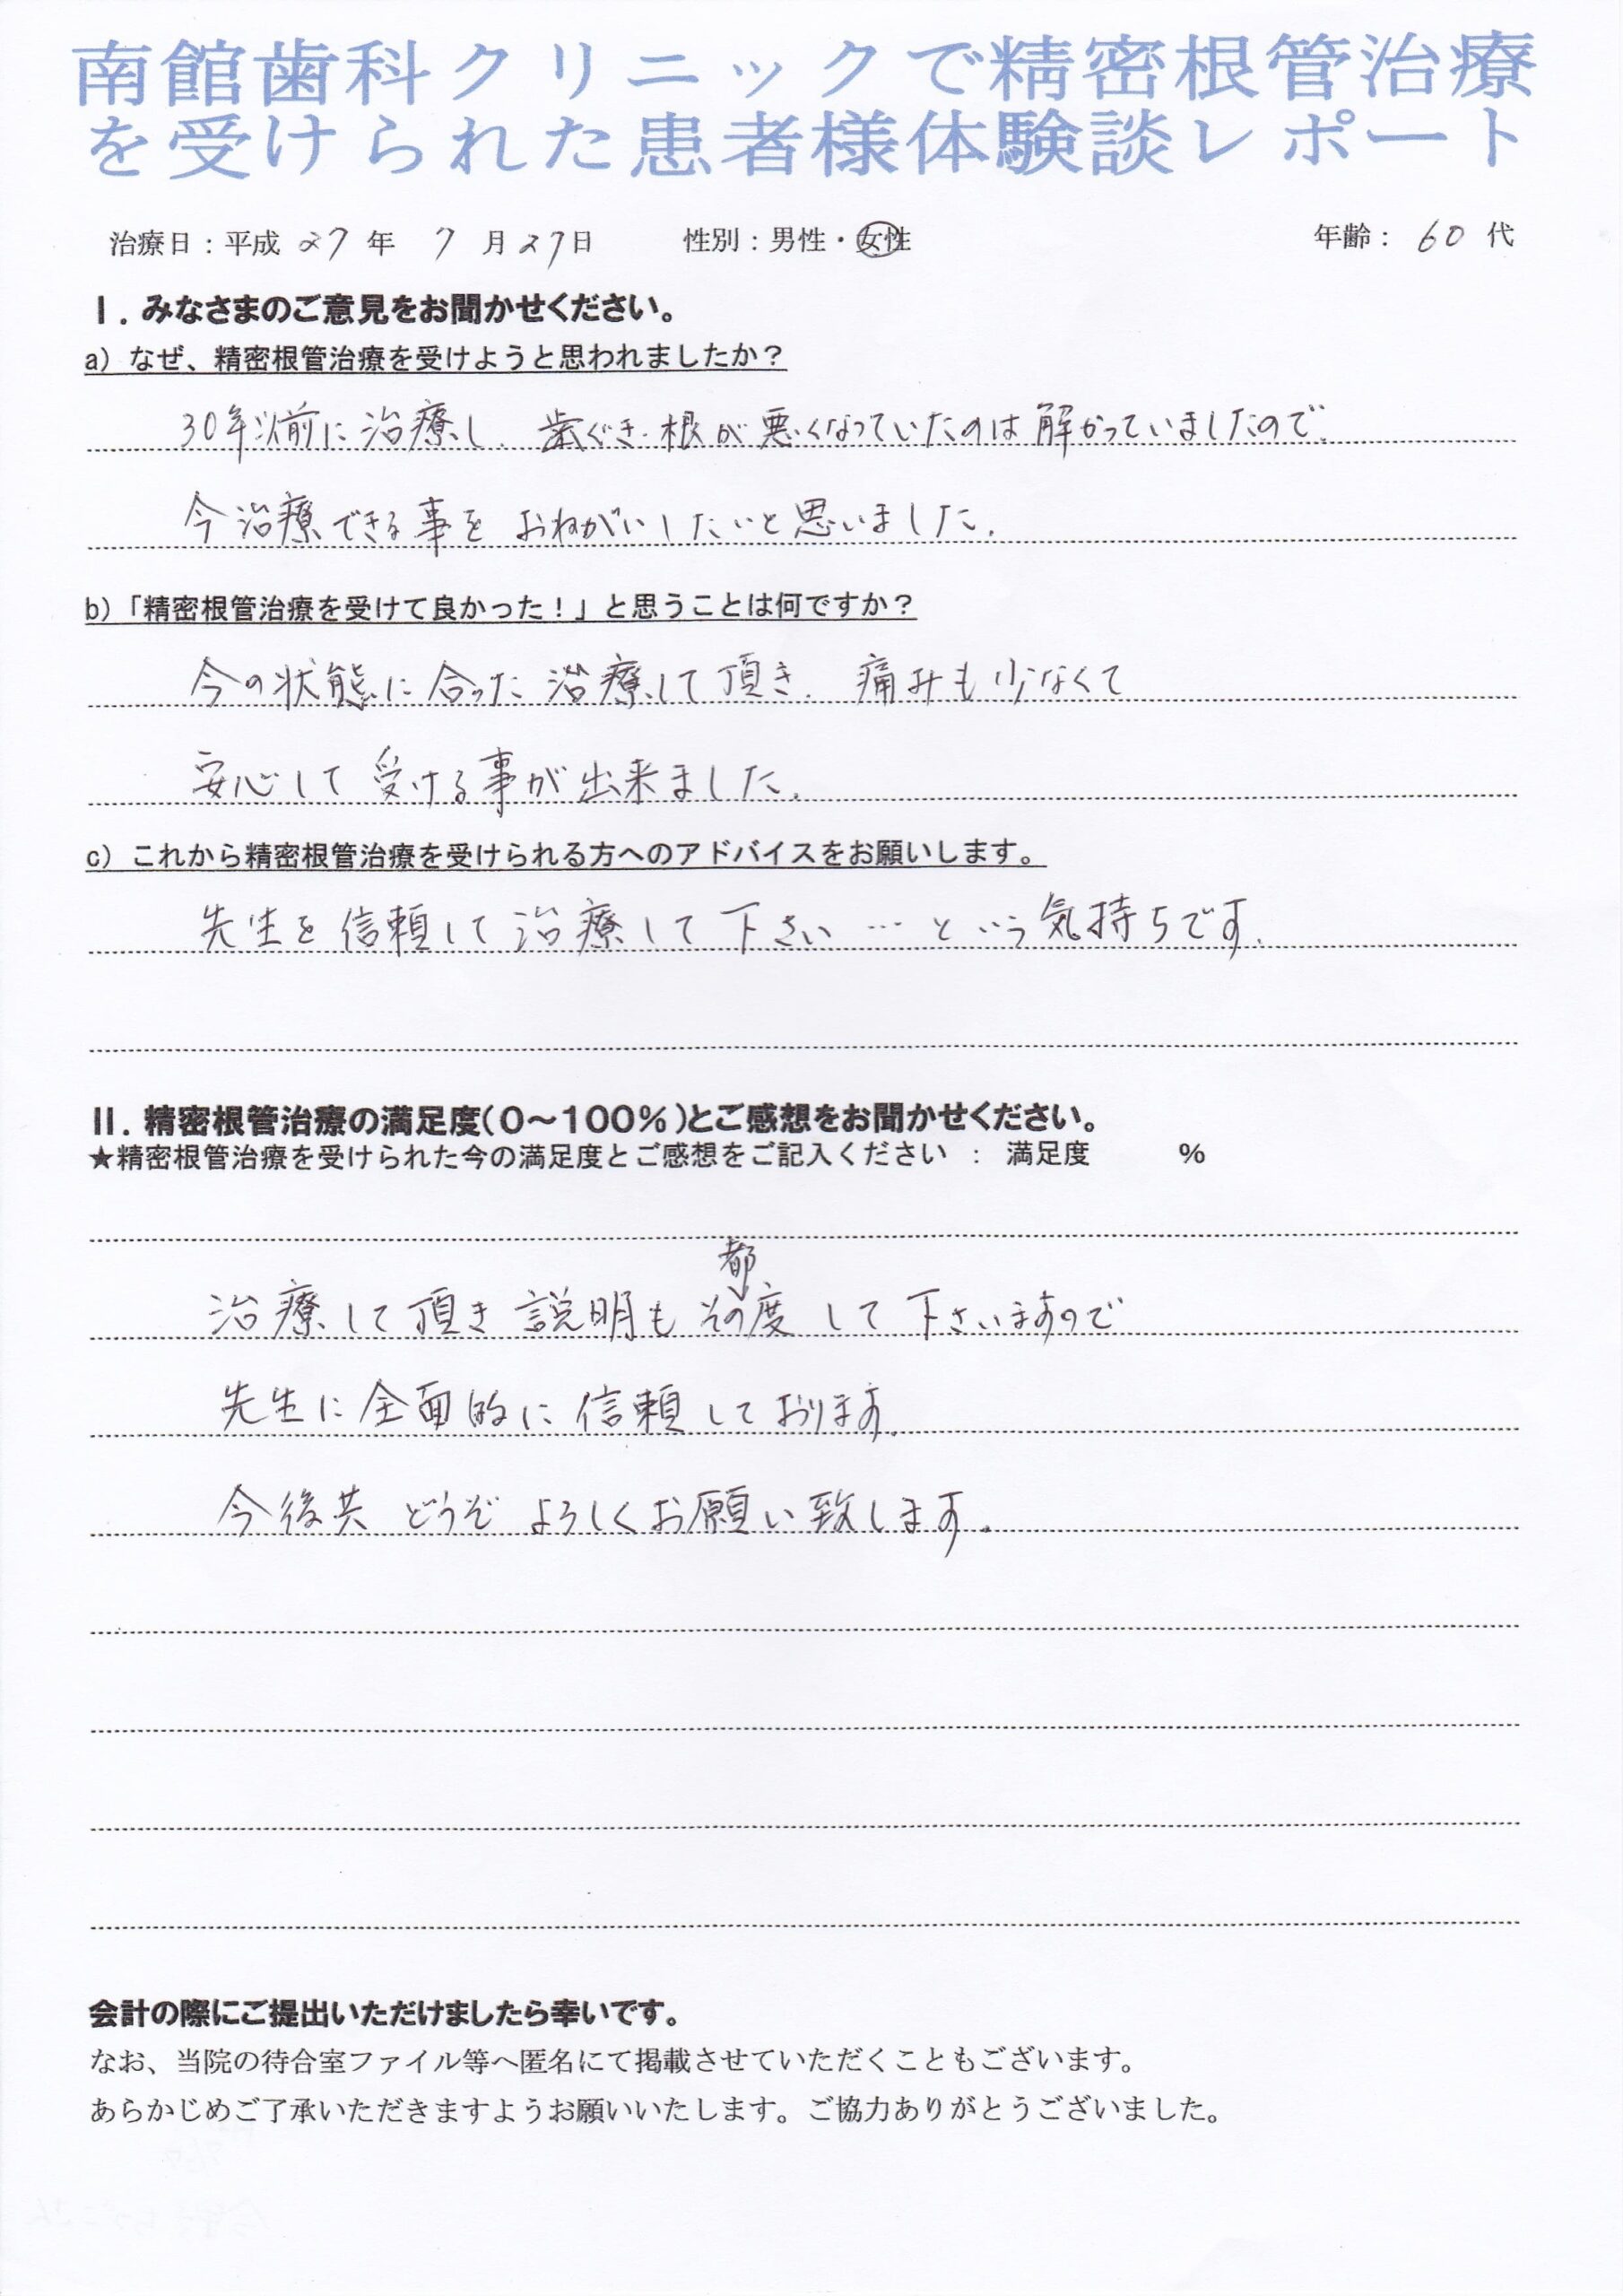 南館歯科クリニックで精密根管治療
を受けられた患者様体験談レポート
治療日：平成 27 年 7 月 27日 性別：男性・女性 年齢： 60 代
Ⅰ．みなさまのご意見をお聞かせください。
a）なぜ、精密根管治療を受けようと思われましたか？
30年以前に治療し、歯ぐき・根が悪くなっていたのは解かっていましたので、
今治療できる事をおねがいしたいと思いました。
b）「精密根管治療を受けて良かった！」と思うことは何ですか？
今の状態に合った治療して頂き、痛みも少なくて
安心して受ける事が出来ました。
c）これから精密根管治療を受けられる方へのアドバイスをお願いします。
先生を信頼して治療して下さい…という気持ちです。
Ⅱ．精密根管治療の満足度（０～１００％）とご感想をお聞かせください。
★精密根管治療を受けられた今の満足度とご感想をご記入ください ： 満足度 ％
都
治療して頂き説明もその度して下さいますので
先生に全面的に信頼しております。
今後共どうぞよろしくお願い致します。
会計の際にご提出いただけましたら幸いです。
なお、当院の待合室ファイル等へ匿名にて掲載させていただくこともございます。
あらかじめご了承いただきますようお願いいたします。ご協力ありがとうございました。